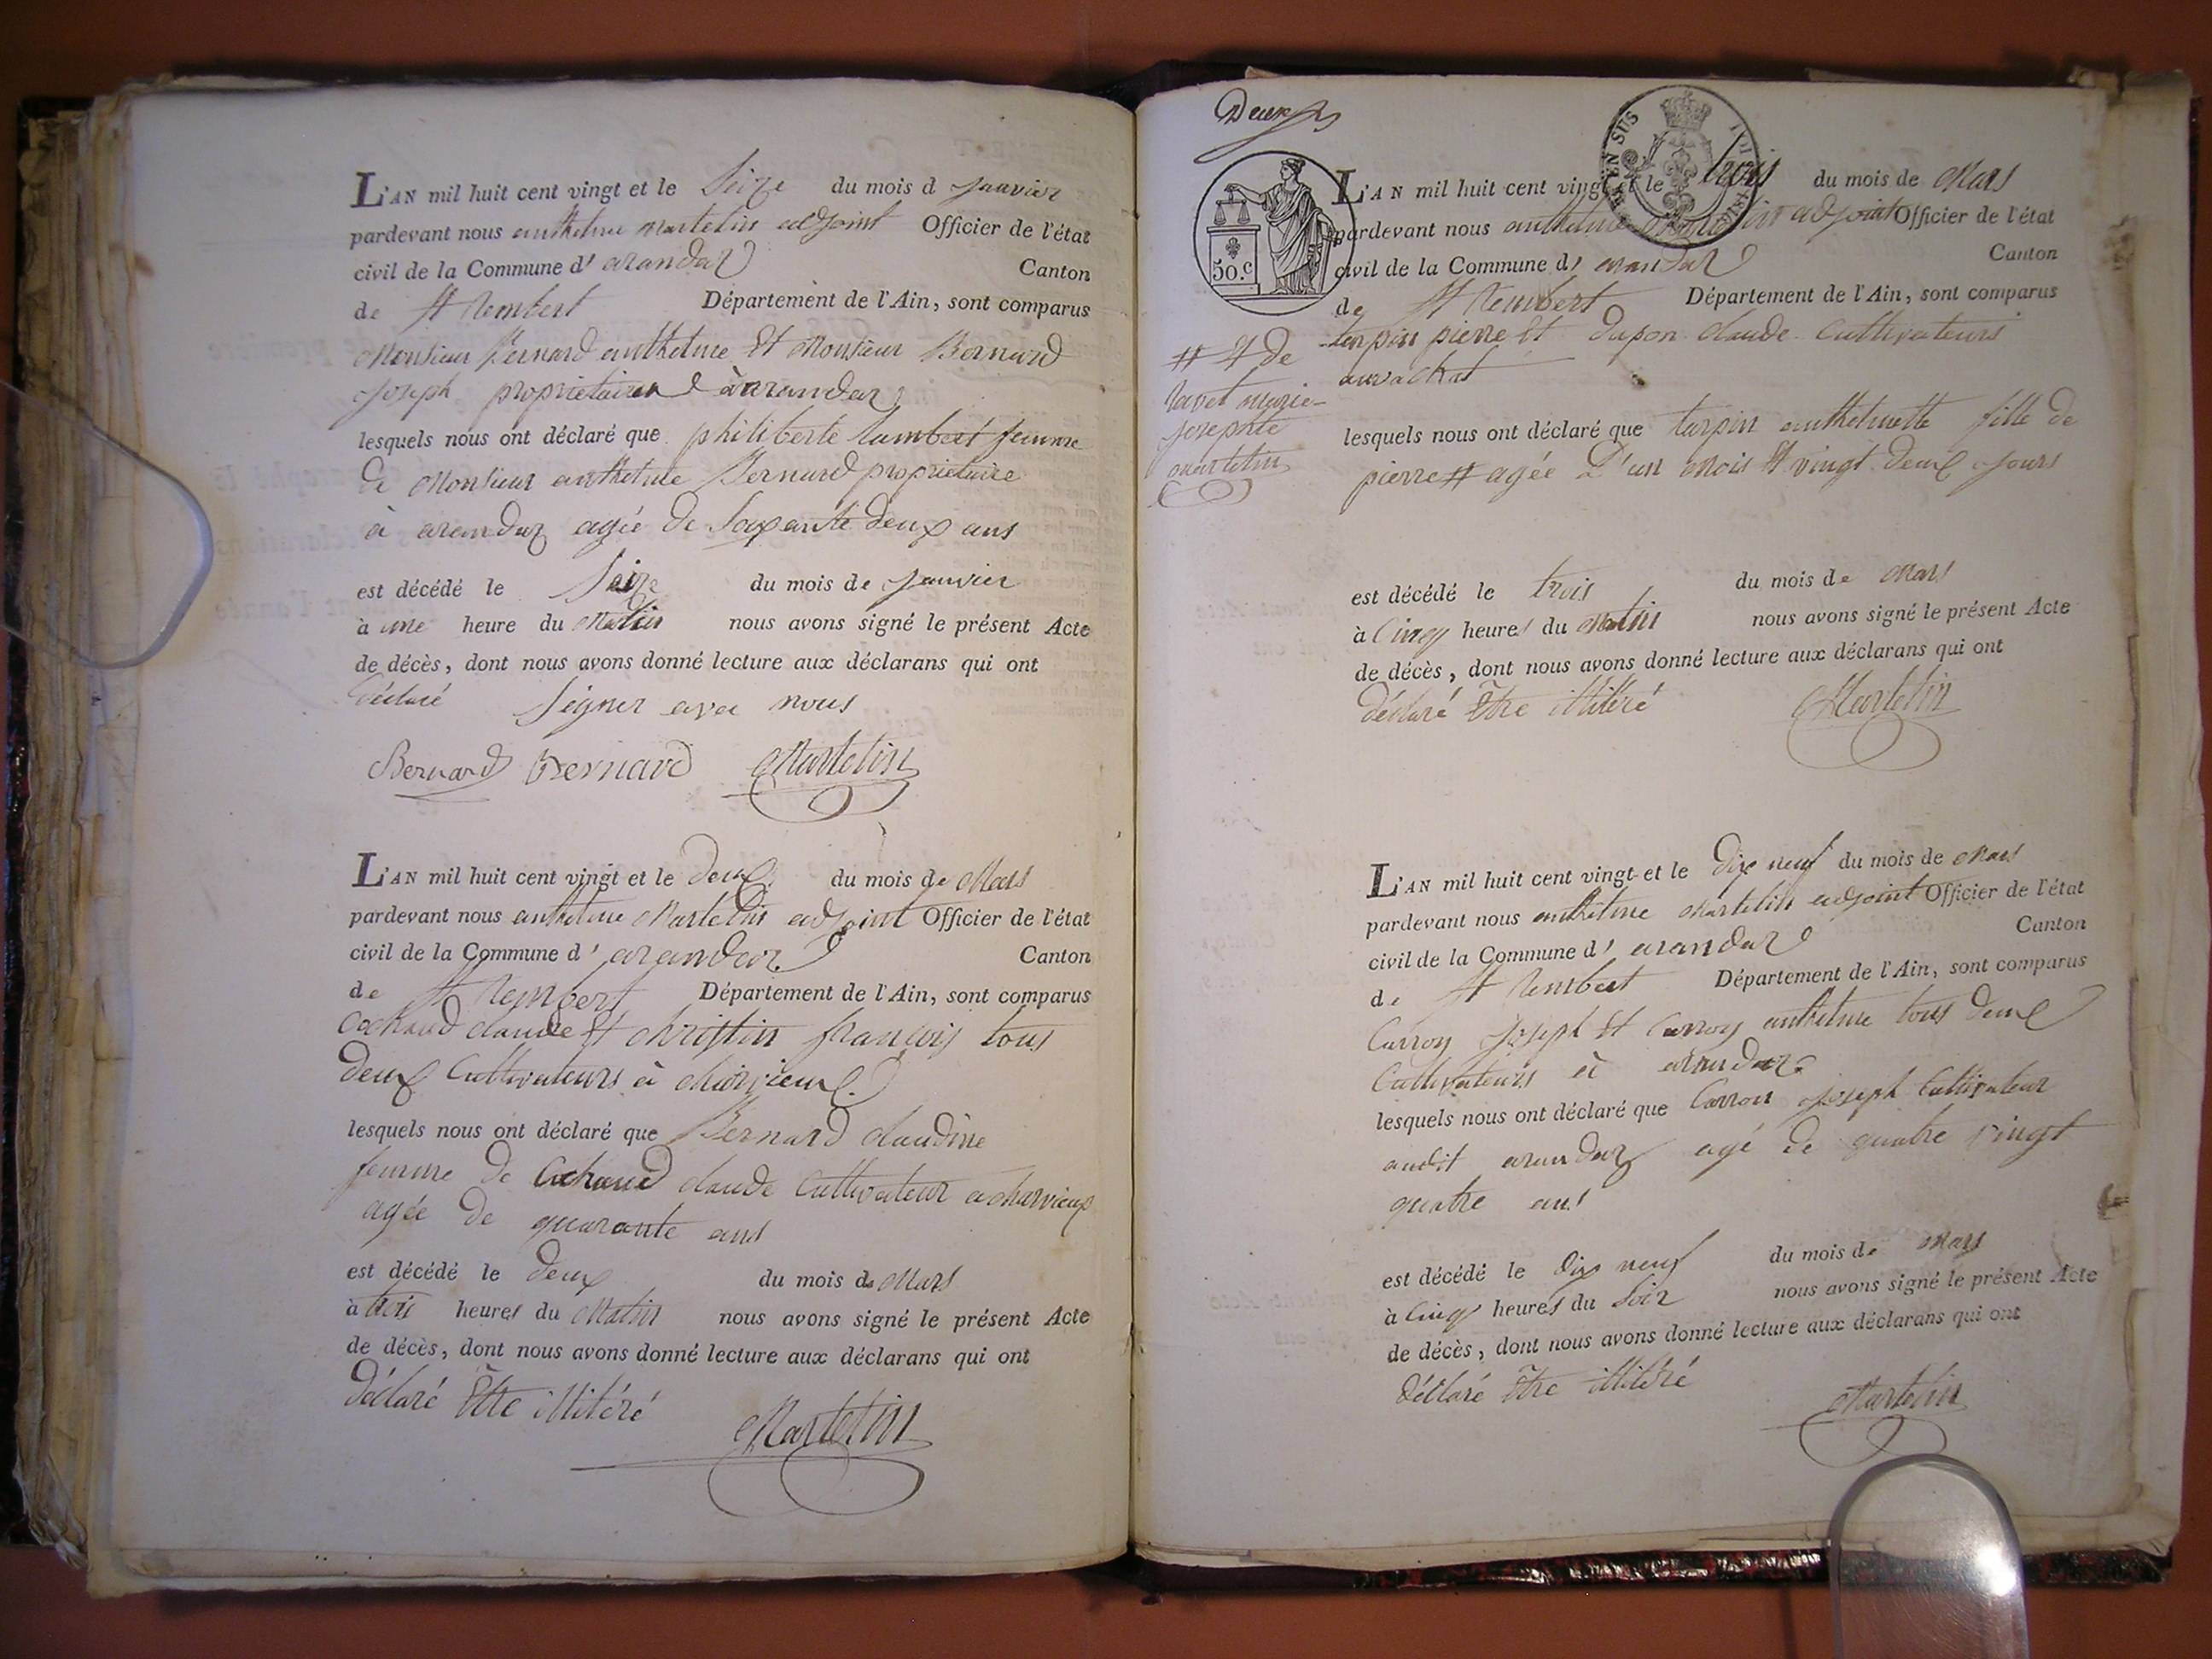 L'AN mil huit cent vingt et le Seize du mois d janvier
pardevant nous anthelme martelin adjoint Officier de l'état
civil de la Commune d' arandaz Canton
de St Rembert Département de l'Ain, sont comparus
Monsieur Bernard anthelme Et Monsieur Bernard
joseph proprietaires à arandaz
lesquels nous ont déclaré que philiberte lambert femme
de Monsieur anthelme Bernard proprietaire
à arandaz agée de Soixante deux ans
est décédé le Seize du mois de janvier
à une heure du Matin nous avons signé le présent Acte
de décès, dont nous avons donné lecture aux déclarans qui ont
déclaré Signer avec nous
Bernard Bernard Martelin
L'AN mil huit cent vingt et le deux du mois de Mars
pardevant nous anthelme Martelin adjoint Officier de l'état
civil de la Commune d' arandaz Canton
de St Rembert Département de l'Ain, sont comparus
Cochaud claude Et christin françois tous
deux Cultivateurs à charvieux
lesquels nous ont déclaré que Bernard claudine
femme de Cochaud claude Cultivateur a charvieux
agée de quarante ans
est décédé le deux du mois de Mars
à trois heures du Matin nous avons signé le présent Acte
de décès, dont nous avons donné lecture aux déclarans qui ont
déclaré Etre illitéré
Martelin
Deux
50.c
L'AN mil huit cent vingt et le trois du mois de Mars
pardevant nous anthelme Martelin adjoint Officier de l'état
civil de la Commune d' arandaz Canton
de St Rembert Département de l'Ain, sont comparus
turpin pierre Et dupon claude Cultivateurs
# & de
marie
josephte
martelin
lesquels nous ont déclaré que turpin anthelmette fille de
pierre # agée D'un Mois Et vingt deux jours
est décédé le trois du mois de Mars
à Cinq heures du Matin nous avons signé le présent Acte
de décès, dont nous avons donné lecture aux déclarans qui ont
déclaré Etre illitéré Martelin
L'AN mil huit cent vingt et le dix neuf du mois de Mars
pardevant nous anthelme Martelin adjoint Officier de l'état
civil de la Commune d' arandaz Canton
de St Rembert Département de l'Ain, sont comparus
Carron joseph Et Carron anthelme tous deux
Cultivateurs à arandaz
lesquels nous ont déclaré que Carron joseph Cultivateur
audit arandaz agé de quatre vingt
quatre ans
est décédé le dix neuf du mois de Mars
à Cinq heures du Soir nous avons signé le présent Acte
de décès, dont nous avons donné lecture aux déclarans qui ont
déclaré Etre illitéré Martelin